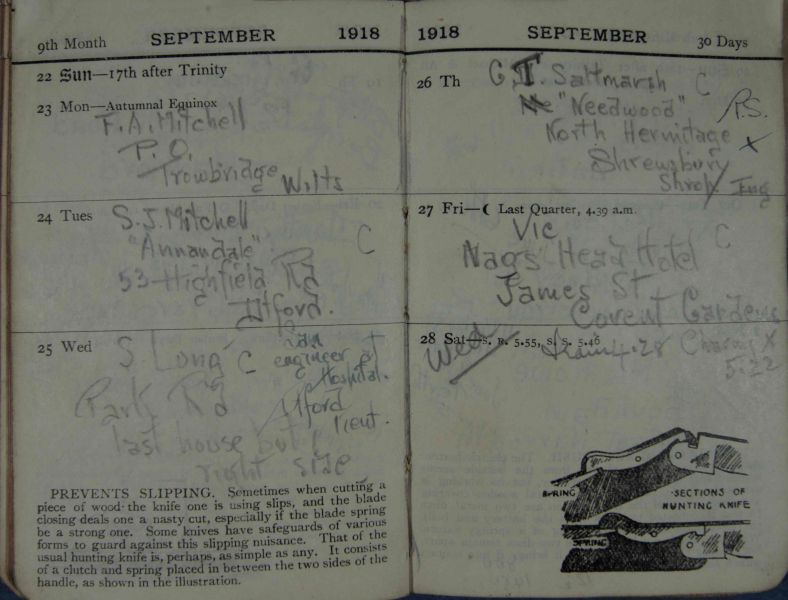 9th Month SEPTEMBER 1918
22 Sun—17th after Trinity
23 Mon—Autumnal Equinox
F. A. Mitchell
P. O.
Trowbridge
Wilts
24 Tues
S. J. Mitchell
"Annandale" C
53 Highfield Rd
Ilford.
25 Wed
S Long C
engineer at
Hospital.
Park Rd Ilford
last house but 1
right side
PREVENTS SLIPPING. Sometimes when cutting a
piece of wood the knife one is using slips, and the blade
closing deals one a nasty cut, especially if the blade spring
be a strong one. Some knives have safeguards of various
forms to guard against this slipping nuisance. That of the
usual hunting knife is, perhaps, as simple as any. It consists
of a clutch and spring placed in between the two sides of the
handle, as shown in the illustration.
1918 SEPTEMBER 30 Days
26 Th G. T. Saltmarsh C
"Needwood" R.S.
North Hermitage x
Shrewsbury
Shrop Eng
27 Fri—☾ Last Quarter, 4.39 a.m.
Vic C
Nags Head Hotel
James St
Covent Gardens
28 Sat—S. R. 5.55, S. S. 5.46
Wed train 4.28 Charing X
5.22
SPRING
SECTIONS OF
HUNTING KNIFE
SPRING